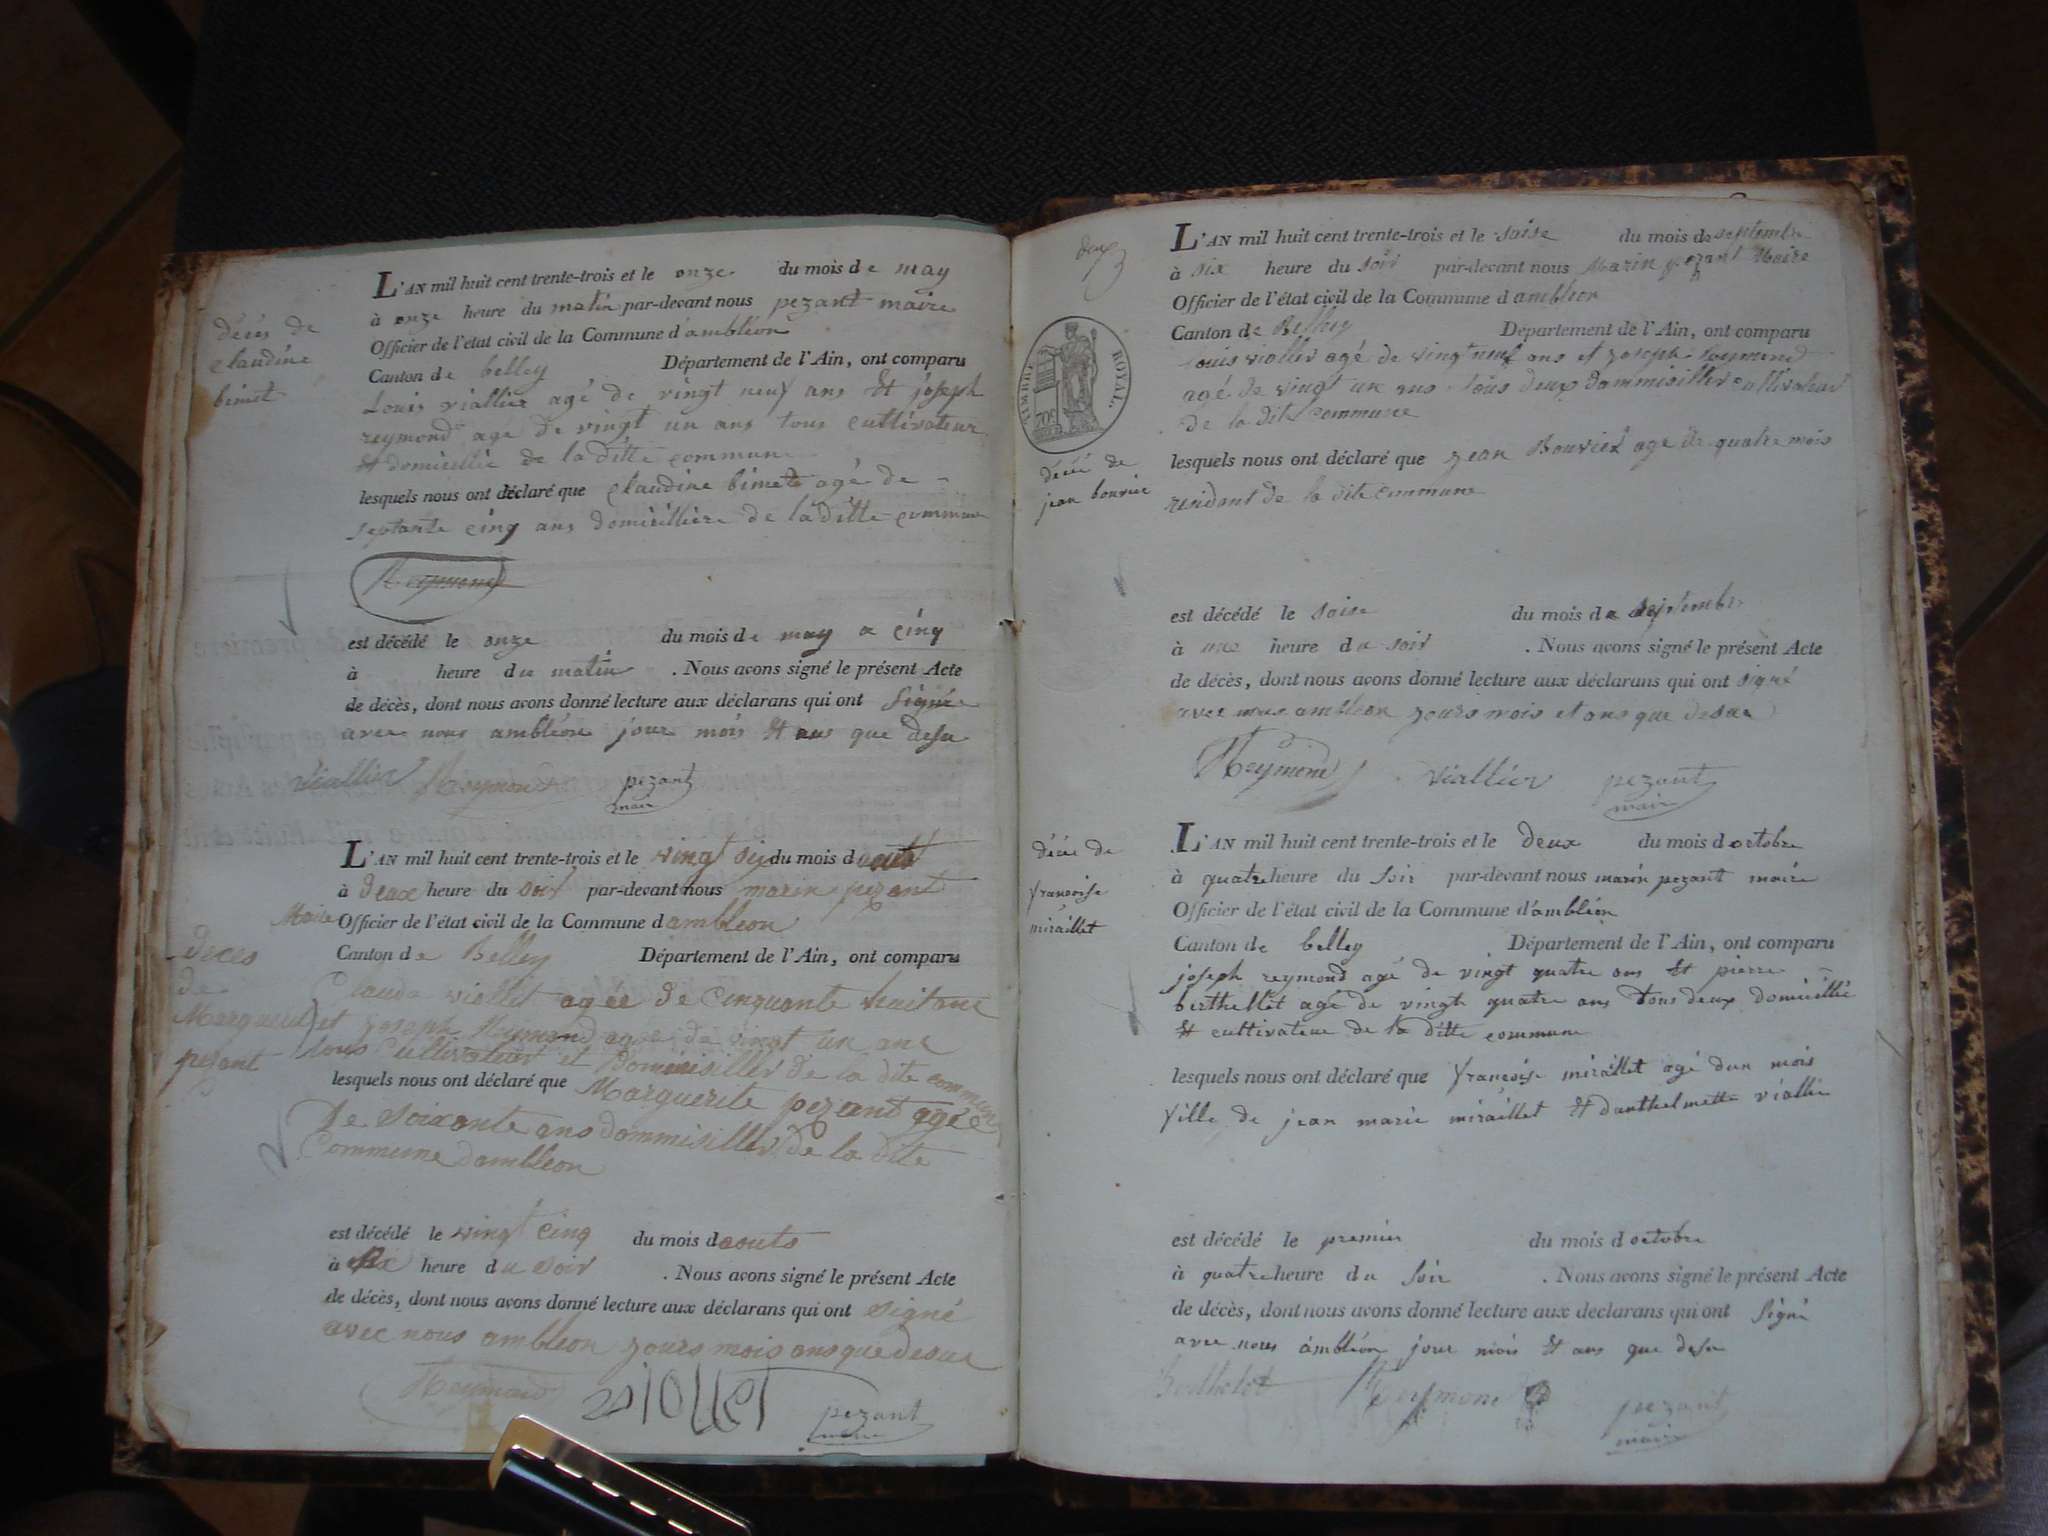 décés de
claudine
bimet
L'AN mil huit cent trente-trois et le onze du mois de may
à onze heure du matin par-devant nous pezant maire
Officier de l'état civil de la Commune d'ambléon
Canton de belley Département de l'Ain, ont comparu
Louis viallier agé de vingt neuf ans et joseph
reymond agé de vingt un ans tous cultivateur
et domicillié de la ditte commune
lesquels nous ont déclaré que claudine bimet agé de
septante cinq ans domicillière de la ditte commune
Reymond
est décédé le onze du mois de may a cinq
à heure du matin . Nous avons signé le présent Acte
de décès, dont nous avons donné lecture aux déclarans qui ont signé
avec nous ambléon jour mois et ans que desu
viallier Reymond pezant
maire
L'AN mil huit cent trente-trois et le vingt six du mois d'aout
à deux heure du soir par-devant nous marin pezant
Maire Officier de l'état civil de la Commune d'ambleon
Canton de Belley Département de l'Ain, ont comparu
Claude viollet agée de cinquante huit ans
et joseph Reymond agée de vingt un ans
tous cultivateur et domisiller de la dite commune
décés
de
Marguerit
pezant
lesquels nous ont déclaré que Marguerite pezant agée
de soixante ans dommisiller de la dite
Commune d'ambleon
est décédé le vingt cinq du mois d'aouts
à heure du soir . Nous avons signé le présent Acte
de décès, dont nous avons donné lecture aux déclarans qui ont signé
avec nous ambleon jours mois ans que desue
Reymond pezant
maire
deux
L'AN mil huit cent trente-trois et le saise du mois de septembre
à six heure du soir par-devant nous Marin pezant Maire
Officier de l'état civil de la Commune d'ambleon
Canton de Belley Département de l'Ain, ont comparu
Louis viallier agé de vingt neuf ans et joseph Reymond
agé de vingt un ans tous deux dommisiller cultivateur
de la dite commune
TIMBRE ROYAL.
70c
décés de
jean bouvier
lesquels nous ont déclaré que jean Bouvier age de quatre mois
residant de la dite commune
est décédé le saise du mois de septembre
à une heure du soir . Nous avons signé le présent Acte
de décès, dont nous avons donné lecture aux déclarans qui ont signé
avec nous ambleon jours mois et ans que desue
Reymond viallier pezant
maire
décés de
francoise
miraillet
L'AN mil huit cent trente-trois et le deux du mois d'octobre
à quatre heure du soir par-devant nous marin pezant maire
Officier de l'état civil de la Commune d'ambléon
Canton de belley Département de l'Ain, ont comparu
joseph reymond agé de vingt quatre ans et pierre
berthellet agé de vingt quatre ans tous deux domicillié
et cultivateur de la ditte commune
lesquels nous ont déclaré que francoise miraillet agé d'un mois
fille de jean marie miraillet et d'anthelmette viallier
est décédé le premier du mois d'octobre
à quatre heure du soir . Nous avons signé le présent Acte
de décès, dont nous avons donné lecture aux déclarans qui ont signé
avec nous ambléon jour mois et ans que desu
Berthelet Reymond pezant
maire